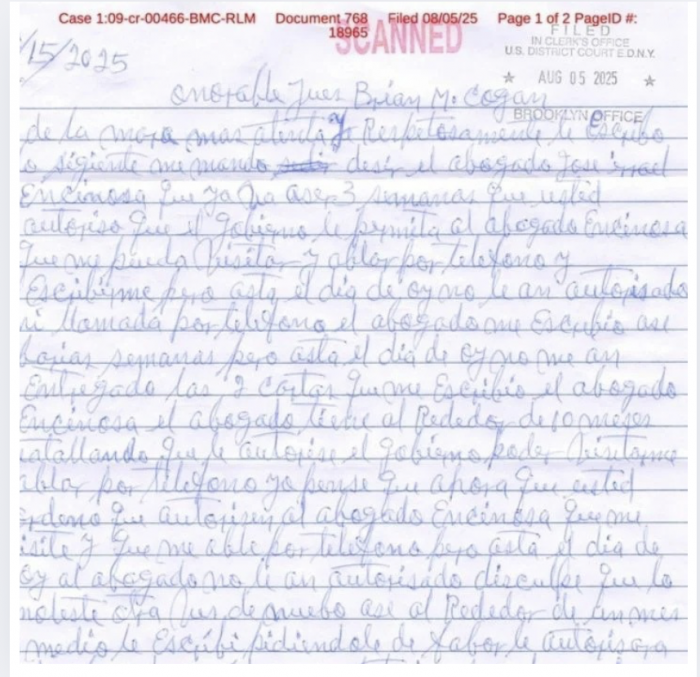 Case 1:09-cr-00466-BMC-RLM Document 768 Filed 08/05/25 Page 1 of 2 PageID #:
18965
SCANNED
FILED
IN CLERK'S OFFICE
U.S. DISTRICT COURT E.D.N.Y.
★ AUG 05 2025 ★
BROOKLYN OFFICE
/15/2025
onorable Jues Brian M. Cogan
de la mara mas atenta y Respetosamente le Escribo
o sigiente me mando desir el abogado Jose israel
Encinosa que ya va aser 3 semanas que usted
autoriso que el gobierno le permita al abogado Encinosa
que me pueda Visitar y ablar por telefono y
Escribirme pero asta el dia de oy no le an autorisado
ni llamada por telefono el abogado me Escribio ase
barias semanas pero asta el dia de oy no me an
Entregado las 2 cartas que me Escribio el abogado
Encinosa el abogado tiene al Rededor de 10 meses
batallando que le autorise el gobierno poder Visitarme
ablar por telefono yo pense que ahora que usted
ordeno que autorisen al abogado Encinosa que me
isite y que me able por telefono pero asta el dia de
oy al abogado no le an autorisado disculpe que lo
moleste otra Ves de nuebo ase al Rededor de un mes
medio le Escribi pidiendole de fabor le autorisara